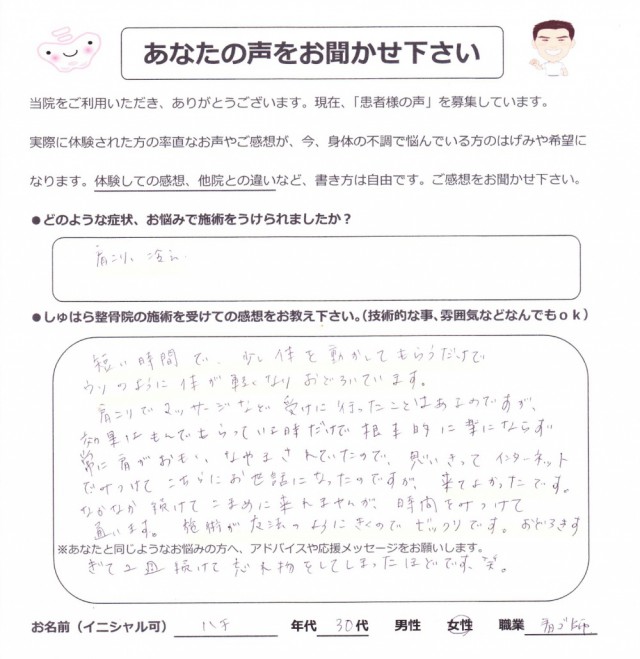 あなたの声をお聞かせ下さい
当院をご利用いただき、ありがとうございます。現在、「患者様の声」を募集しています。
実際に体験された方の率直なお声やご感想が、今、身体の不調で悩んでいる方のはげみや希望に
なります。体験しての感想、他院との違いなど、書き方は自由です。ご感想をお聞かせ下さい。
●どのような症状、お悩みで施術をうけられましたか？
肩こり、冷え
●しゅはら整骨院の施術を受けての感想をお教え下さい。（技術的な事、雰囲気などなんでもｏｋ）
短い時間で、少し体を動かしてもらうだけで
ウソのように体が軽くなりおどろいています。
肩こりでマッサージなど受けに行ったことはあるのですが、
効果はもんでもらっている時だけで根本的に楽にならず
常に肩がおもい、なやまされていたので、思いきってインターネット
でみつけてこちらにお世話になったのですが、来てよかったです。
なかなか続けてこまめに来れませんが、時間をみつけて
通います。施術が魔法のようにきくのでビックリです。おどろきす
※あなたと同じようなお悩みの方へ、アドバイスや応援メッセージをお願いします。
ぎて2週続けて忘れ物をしてしまったほどです、笑。
お名前（イニシャル可） ハチ 年代 30代 男性 女性 職業 看ゴ師